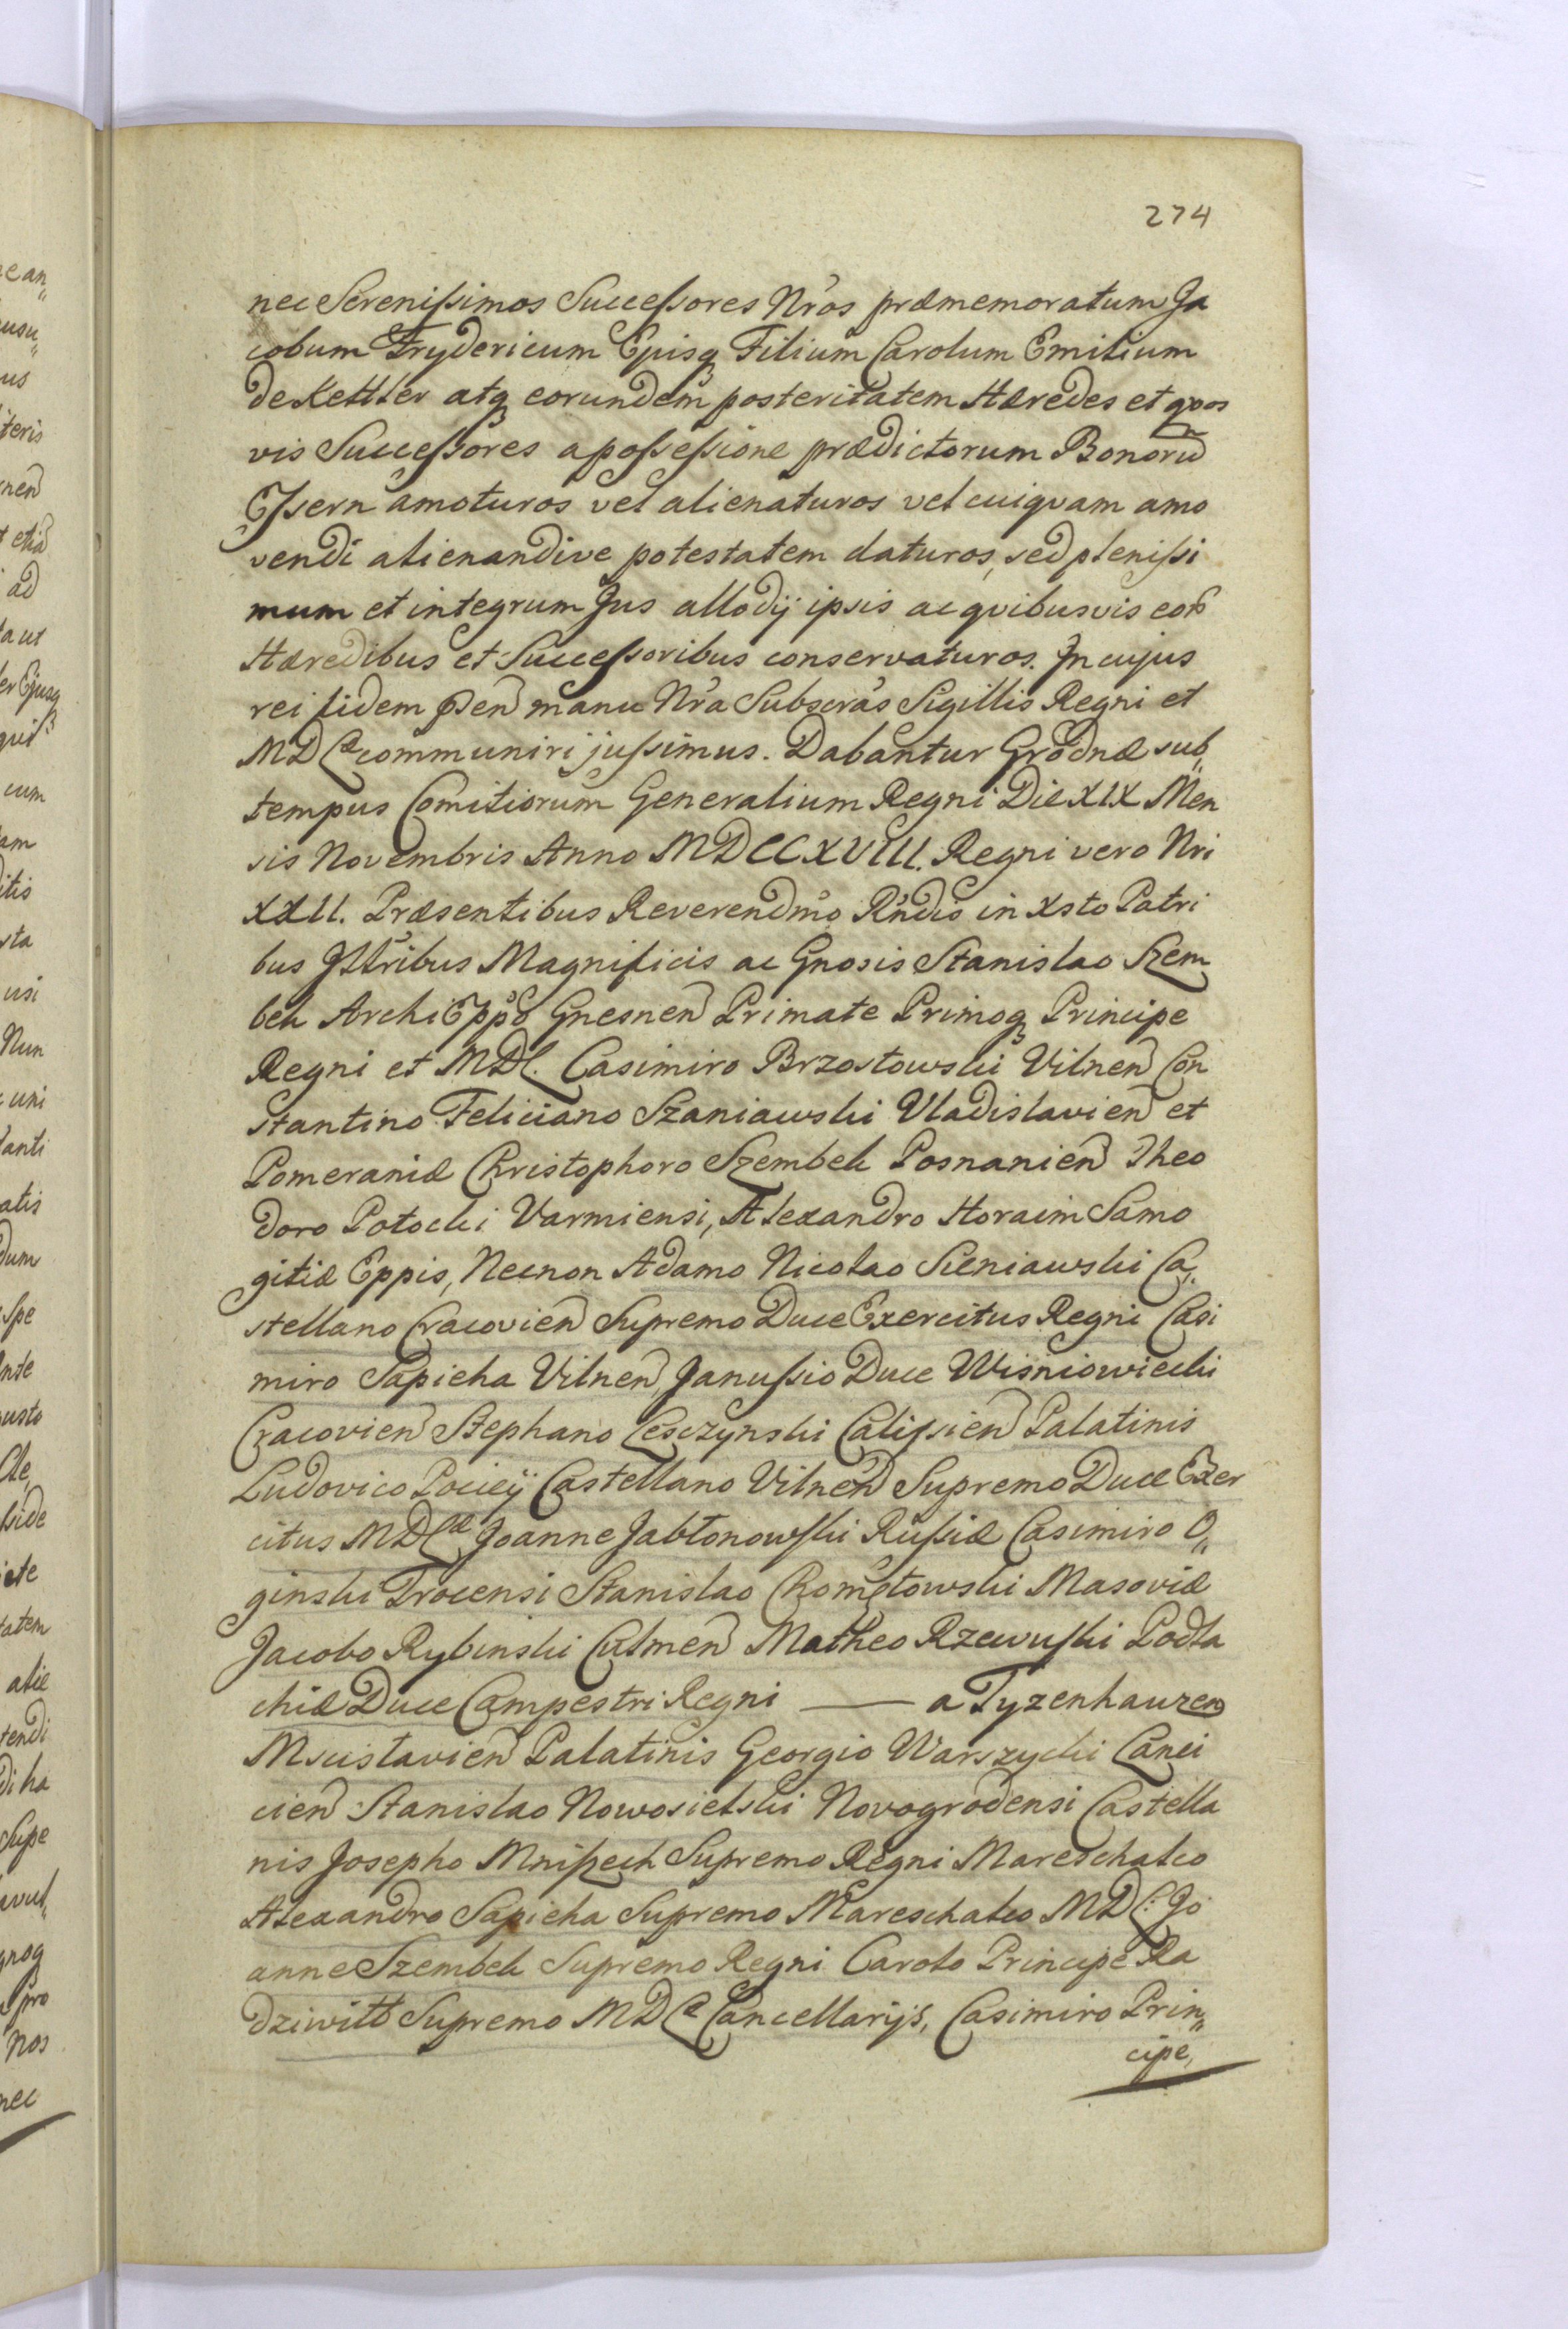 274
nec Serenissimos Successores Nr̃os præmemoratum Ja
cobum Frydericum Ejusq Filium Carolum Emilium
de Kettler atq eorundem posteritatem Hæredes et qvos
vis Successores a possessione prædictorum Bonorũ
Essern amoturos vel alienaturos vel cuiqvam amo
vendi alienandive potestatem daturos, sed plenissi
mum et integrum Jus allodij ipsis ac qvibusvis eoR
Hæredibus et Successoribus conservaturos. In cujus
rei fidem Pñ manu Nr̃a Subscrãs Sigillis Regni et
MDL communiri jussimus. Dabantur Grodnæ sub„
tempus Comitiorum Generalium Regni Die XIX Men
sis Novembris Anno MDCCXVIII. Regni vero Nri
XXII. Præsentibus Reverendmo Rndis in Xsto Patri
bus Illribus Magnificis ac Gnosis Stanislao Szem
bek Archi Eppo Gnesnen Primate Primoq Principe
Regni et MDL. Casimiro Brzostowski Vilnen Con
stantino Feliciano Szaniawski Vladislavien et
Pomeraniæ Christophoro Szembek Posnanien Theo
doro Potocki Varmiensi, Alexandro Horaim Samo
gitiæ Eppis, Necnon Adamo Nicolao Sieniawski Ca„
stellano Cracovien Supremo Duce Exercitus Regni Casi
miro Sapieha Vilnen, Janussio Duce Wisniowiecki
Cracovien Stephano Lesczynski Calissien Palatinis
Ludovico Pociey Castellano Vilnen Supremo Duce Exer
citus MDLæ Joanne Jabłonowski Russiæ Casimiro O„
ginski Trocensi Stanislao Chomętowski Masoviæ
Jacobo Rybinski Culmen Matheo Rzewuski Podla
chiæ Duce Campestri Regni — a Tyzenhauzen
Mscislavien Palatinis Georgio Warszycki Lanci
cien Stanislao Nowosielski Novogrodensi Castella
nis Josepho Mniszech Supremo Regni Mareschalco
Alexandro Sapieha Supremo Mareschalco MDL: Jo
anne Szembek Supremo Regni Carolo Principe Ra
dziwiłł Supremo MDL Cancellarijs, Casimiro Prin„
cipe,